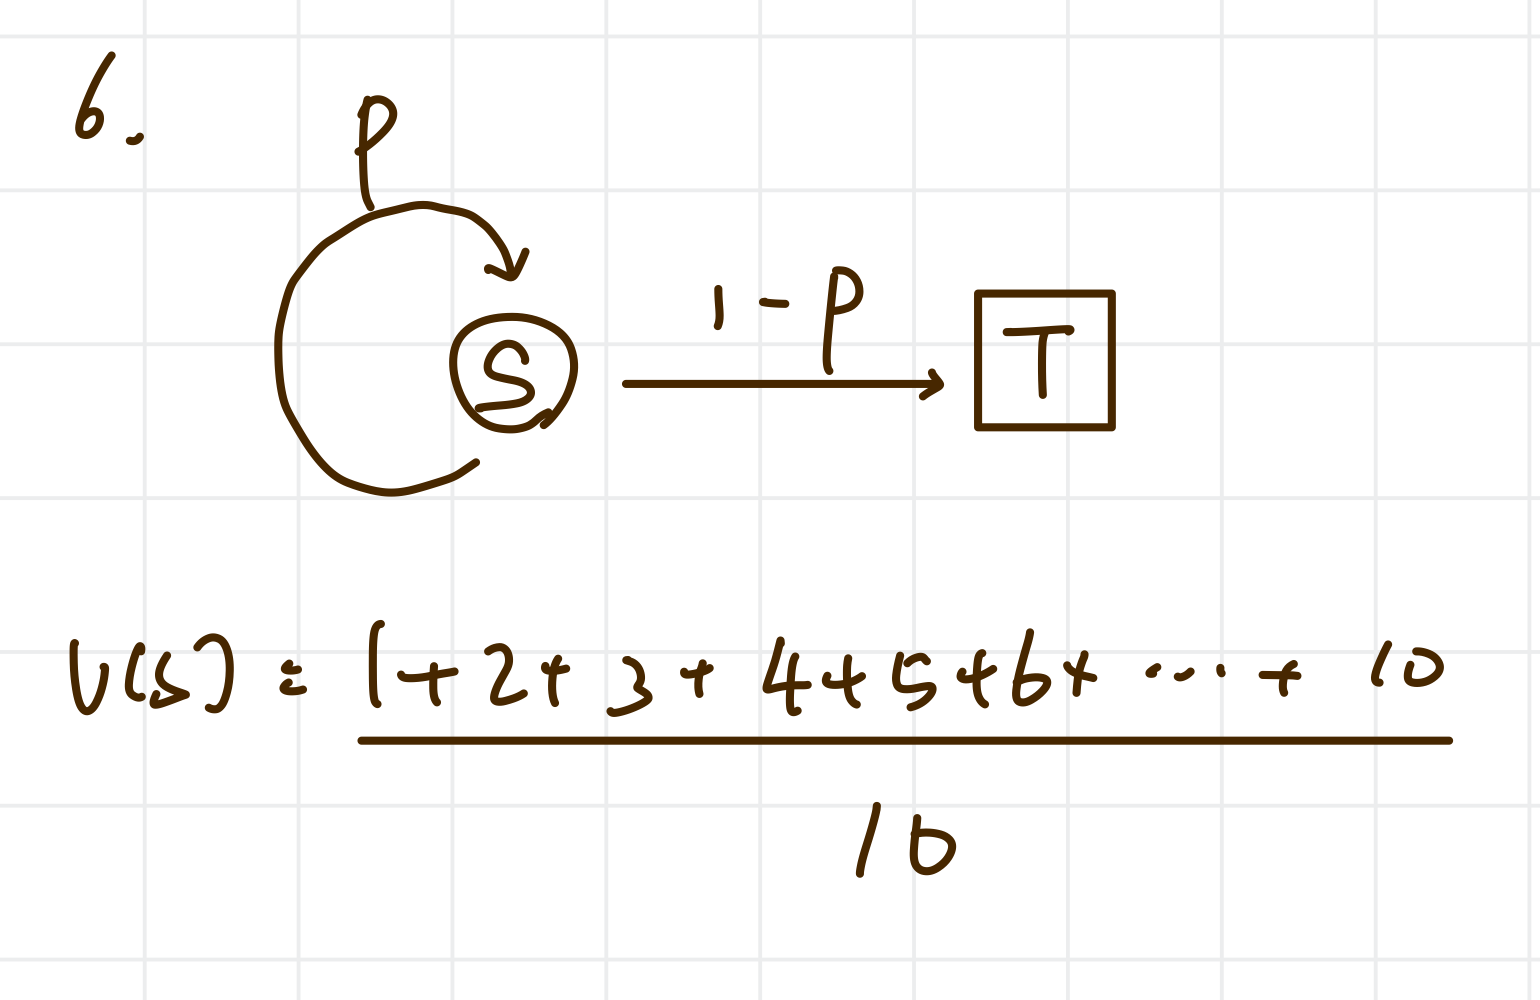 6.
p
1-p
S
T
V(s) = 1+2+3+4+5+6+...+10
10